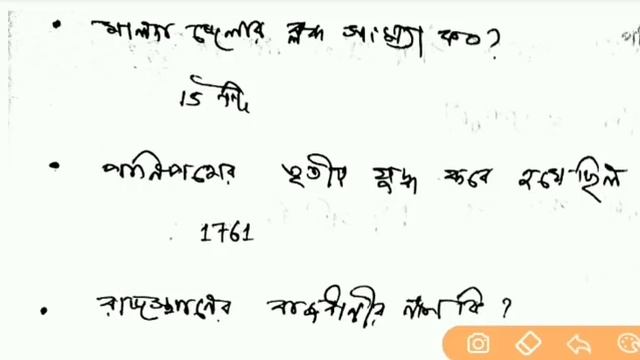 • মালদা জেলার ব্লক সংখ্যা কত?
15 টি
• পানিপথের তৃতীয় যুদ্ধ কবে হয়েছিল
1761
• রাজস্থানের রাজধানীর নাম কি?